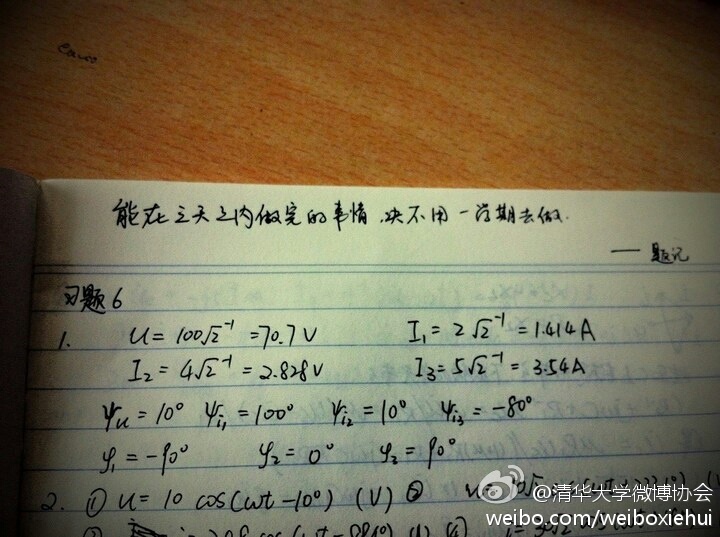 能在三天之内做完的事情,决不用一学期去做.
—— 题记
习题6
1. U = 100√2⁻¹ = 70.7 V I₁ = 2√2⁻¹ = 1.414 A
I₂ = 4√2⁻¹ = 2.828 V I₃ = 5√2⁻¹ = 3.54 A
ψᵤ = 10° ψᵢ₁ = 100° ψᵢ₂ = 10° ψᵢ₃ = -80°
φ₁ = -90° φ₂ = 0° φ₂ = 90°
2. ① u = 10 cos(ωt - 10°) (V) ②
@清华大学微博协会
weibo.com/weiboxiehui